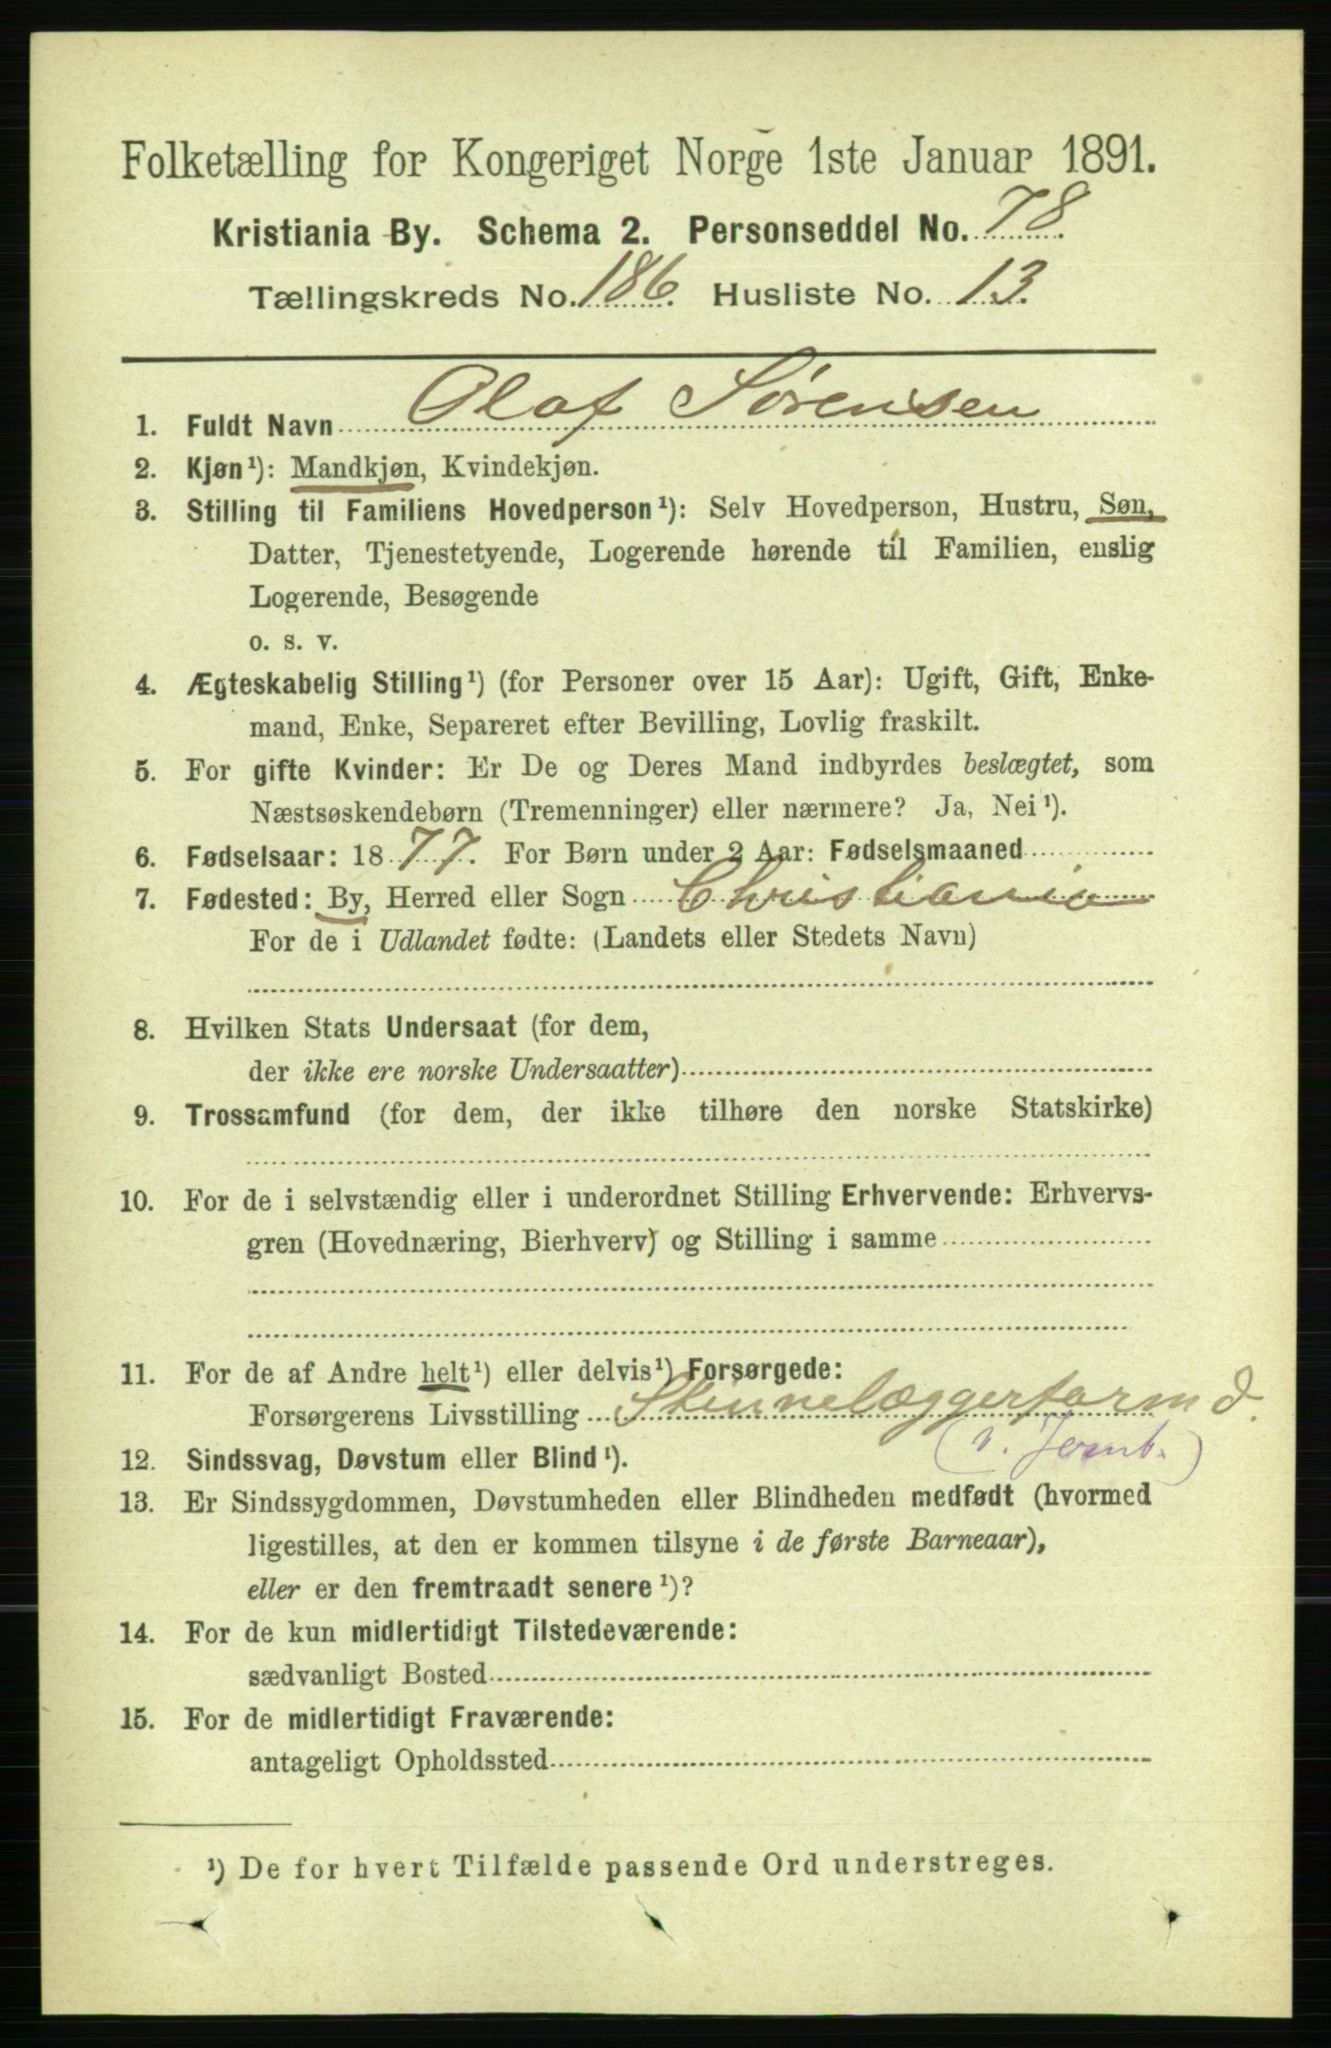 Folketælling for Kongeriget Norge 1ste Januar 1891.
Kristiania By. Schema 2. Personseddel No. 78.
Tællingskreds No. 186. Husliste No. 13.
1. Fuldt Navn Olaf Sörensen
2. Kjøn¹): Mandkjøn, Kvindekjøn.
3. Stilling til Familiens Hovedperson¹): Selv Hovedperson, Hustru, Søn,
Datter, Tjenestetyende, Logerende hørende til Familien, enslig
Logerende, Besøgende
o. s. v.
4. Ægteskabelig Stilling¹) (for Personer over 15 Aar): Ugift, Gift, Enke-
mand, Enke, Separeret efter Bevilling, Lovlig fraskilt.
5. For gifte Kvinder: Er De og Deres Mand indbyrdes beslægtet, som
Næstsøskendebørn (Tremenninger) eller nærmere? Ja, Nei¹).
6. Fødselsaar: 1877. For Børn under 2 Aar: Fødselsmaaned
7. Fødested: By, Herred eller Sogn Christiania
For de i Udlandet fødte: (Landets eller Stedets Navn)
8. Hvilken Stats Undersaat (for dem,
der ikke ere norske Undersaatter)
9. Trossamfund (for dem, der ikke tilhøre den norske Statskirke)
10. For de i selvstændig eller i underordnet Stilling Erhvervende: Erhvervs-
gren (Hovednæring, Bierhverv) og Stilling i samme
11. For de af Andre helt¹) eller delvis¹) Forsørgede:
Forsørgerens Livsstilling Stennelæggerformd.
(v. Jernb.)
12. Sindssvag, Døvstum eller Blind¹).
13. Er Sindssygdommen, Døvstumheden eller Blindheden medfødt (hvormed
ligestilles, at den er kommen tilsyne i de første Barneaar),
eller er den fremtraadt senere¹)?
14. For de kun midlertidigt Tilstedeværende:
sædvanligt Bosted
15. For de midlertidigt Fraværende:
antageligt Opholdssted
¹) De for hvert Tilfælde passende Ord understreges.